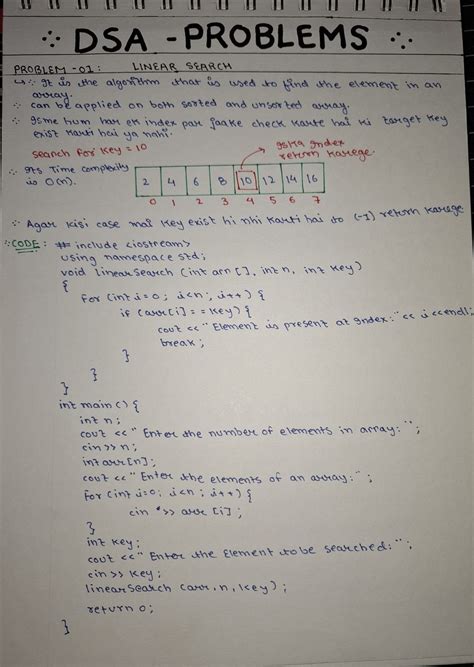 ∴ DSA - PROBLEMS ∴
PROBLEM - 01 : LINEAR SEARCH
↳ ∴ It is the algorithm that is used to find the element in an
array.
∴ can be applied on both sorted and unsorted array.
∴ Isme hum har ek index par jaake check karte hai ki target key
exist karti hai ya nahi.
search for key = 10
iska Index
return karege.
∴ Its Time complexity
is O(n).
2 4 6 8 10 12 14 16
0 1 2 3 4 5 6 7
∴ Agar kisi case mai key exist hi nhi karti hai to (-1) return karege
∴ CODE : # include <iostream>
using namespace std;
void linearSearch (int arr [], int n, int key)
{
for (int i=0; i<n; i++) {
if (arr[i] == key) {
cout << "Element is present at Index:" << i <<endl;
break;
}
}
}
int main () {
int n;
cout << "Enter the number of elements in array:";
cin >> n;
int arr[n];
cout << "Enter the elements of an array:";
for (int i=0; i<n; i++) {
cin >> arr [i];
}
int key;
cout << "Enter the Element to be searched:";
cin >> key;
linearSearch (arr, n, key);
return 0;
}